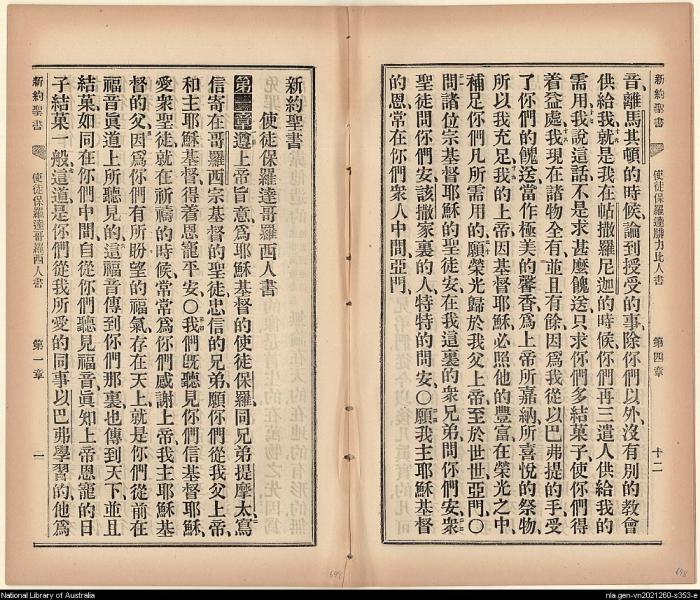 新約聖書
使徒保羅達腓力比人書
第四章
十二
音、離馬其頓的時候、論到授受的事、除你們以外、沒有別的教會
供給我、就是我在帖撒羅尼迦的時候、你們再三遣人供給我的
需用、我說這話不是求甚麼餽送、只求你們多結菓子、使你們得
着益處、我現在諸物全有、並且有餘、因爲我從以巴弗提的手、受
了你們的餽送、當作極美的馨香、爲上帝所嘉納、所喜悅的祭物、
所以我充足、我的上帝因基督耶穌、必照他的豐富在榮光之中、
補足你們凡所需用的、願榮光歸於我父上帝、至於世世、亞門、〇
問諸位宗基督耶穌的聖徒安、在我這裏的衆兄弟問你們安、衆
聖徒問你們安、該撒家裏的人特特的問安、〇願我主耶穌基督
的恩常在你們衆人中間、亞門、
新約聖書
使徒保羅達哥羅西人書
第一章遵上帝旨意、爲耶穌基督的使徒保羅、同兄弟提摩太、寫
信寄在哥羅西宗基督的聖徒忠信的兄弟、願你們從我父上帝、
和主耶穌基督、得着恩寵平安、〇我們旣聽見你們信基督耶穌、
愛衆聖徒、就在祈禱的時候、常常爲你們感謝上帝、我主耶穌基
督的父、因爲你們有所盼望的福氣存在天上、就是你們從前在
福音眞道上所聽見的、這福音傳到你們那裏、也傳到天下、並且
結菓、如同在你們中間、自從你們聽見福音、眞知上帝恩寵的日
子結菓一般、這道是你們從我所愛的同事以巴弗學習的、他爲
新約聖書
使徒保羅達哥羅西人書
第一章
一
National Library of Australia
nla.gen-vn2021260-s353-e